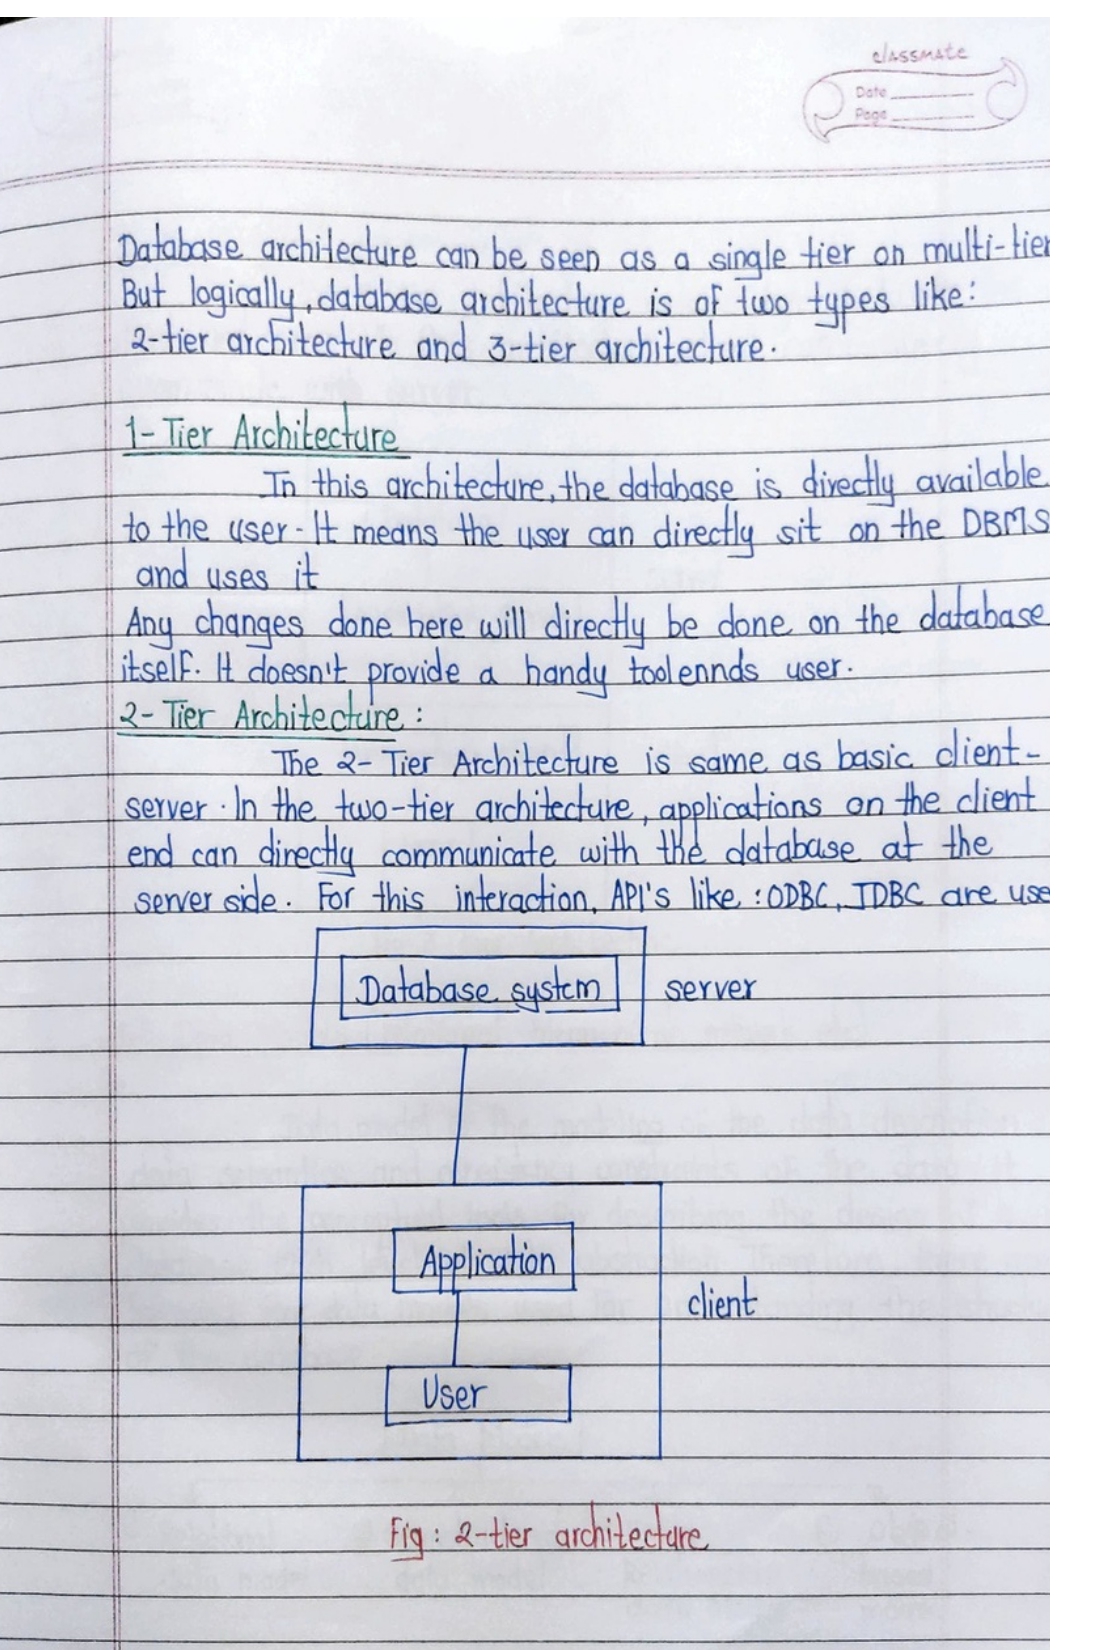 classmate
Date
Page
Database architecture can be seen as a single tier on multi-tier
But logically, database architecture is of two types like:
2-tier architecture and 3-tier architecture.
1- Tier Architecture
In this architecture, the database is directly available
to the user - It means the user can directly sit on the DBMS
and uses it
Any changes done here will directly be done on the database
itself. It doesn't provide a handy toolennds user.
2- Tier Architecture :
The 2- Tier Architecture is same as basic client-
server . In the two-tier architecture, applications on the client
end can directly communicate with the database at the
server side. For this interaction, API's like : ODBC, JDBC are use
Database system
server
Application
client
User
Fig : 2-tier architecture